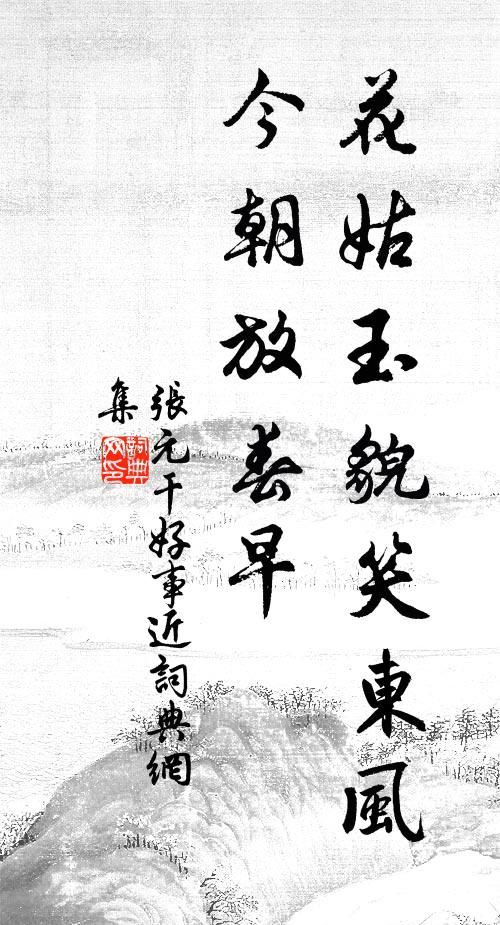 花姑玉貌笑東風
今朝放春早
張元干好事近詞典網
集
詞典
网印